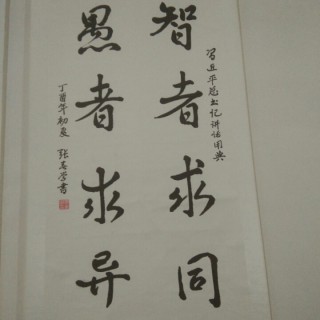 智者求同
习近平总书记讲话用典
愚者求异
丁酉年初夏 张书